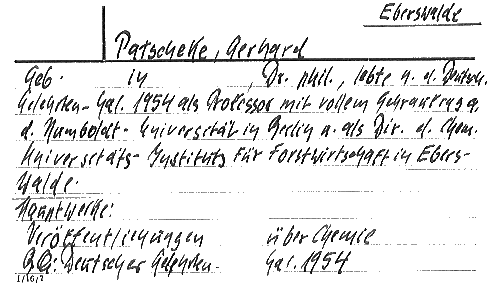 Eberswalde
Patscheke, Gerhard
Geb. in , Dr. phil., lebte n. d. Deutsch.
Gelehrten-Kal. 1954 als Professor mit vollem Lehrauftrag a.
d. Humboldt-Universität in Berlin u. als Dir. d. Chem.
Universitäts-Instituts für Forstwirtschaft in Ebers-
walde.
Hauptwerke:
Veröffentlichungen über Chemie
Qu.: Deutscher Gelehrten- Kal. 1954